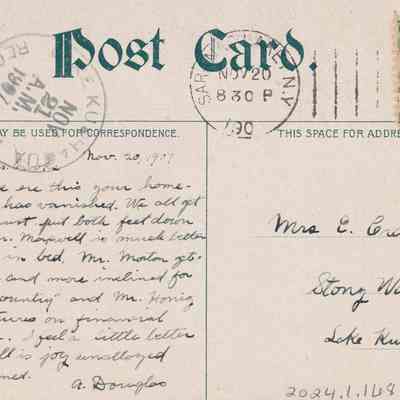 Post Card.
SARANAC LAKE, N.Y.
NOV 20
830 P
190
REC
NOV
21
A.M.
1907
AY BE USED FOR CORRESPONDENCE.
THIS SPACE FOR ADDRE
Nov. 20, 1907
ere this your home-
has vanished. We all get
just put both feet down
Maxwell is much better
in bed. Mr. Morton get-
and more inclined for
country" and Mr. Honig
tures on financial
I feel a little better
ll is joy unalloyed
ned.
A. Douglas
Mrs E. Cra
Stony W
Lake Ku
2024.1.148